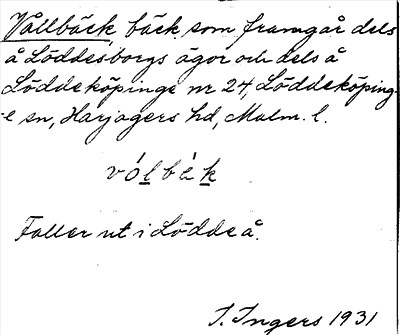 Vållbäck, bäck som framgår dels
å Löddesborgs ägor och dels å
Löddeköpinge nr 24, Löddeköping-
e sn, Harjagers hd, Malm. l.
vó́lbȧ́k
Faller ut i Lödde å.
I. Ingers 1931